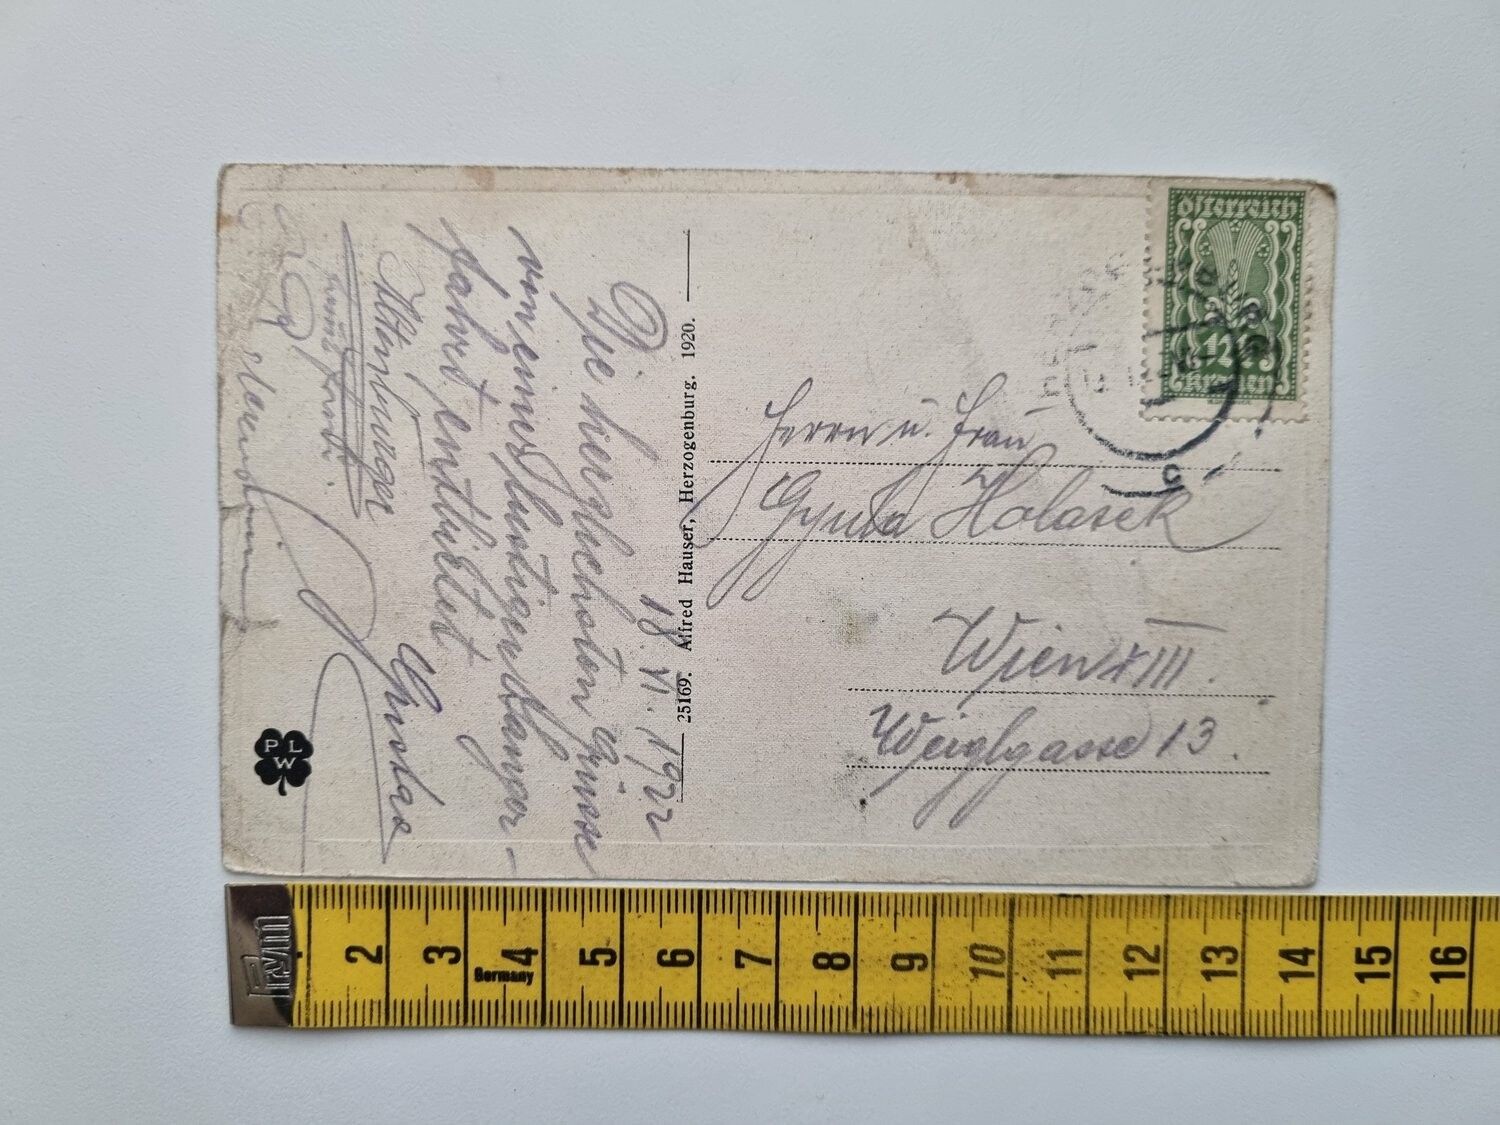 18. VI. 1922
Die herzlichsten Grüsse
von einer lustigen Wanger-
fahrt entbietet
Gustav
Altenburger
25169. Alfred Hauser, Herzogenburg. 1920.
PLW
Österreich
Kronen
Herrn u. Frau
Gyula Holasek
Wien XIII.
Weiglgasse 13.
Prym
2 3 4 5 6 7 8 9 10 11 12 13 14 15 16
Germany